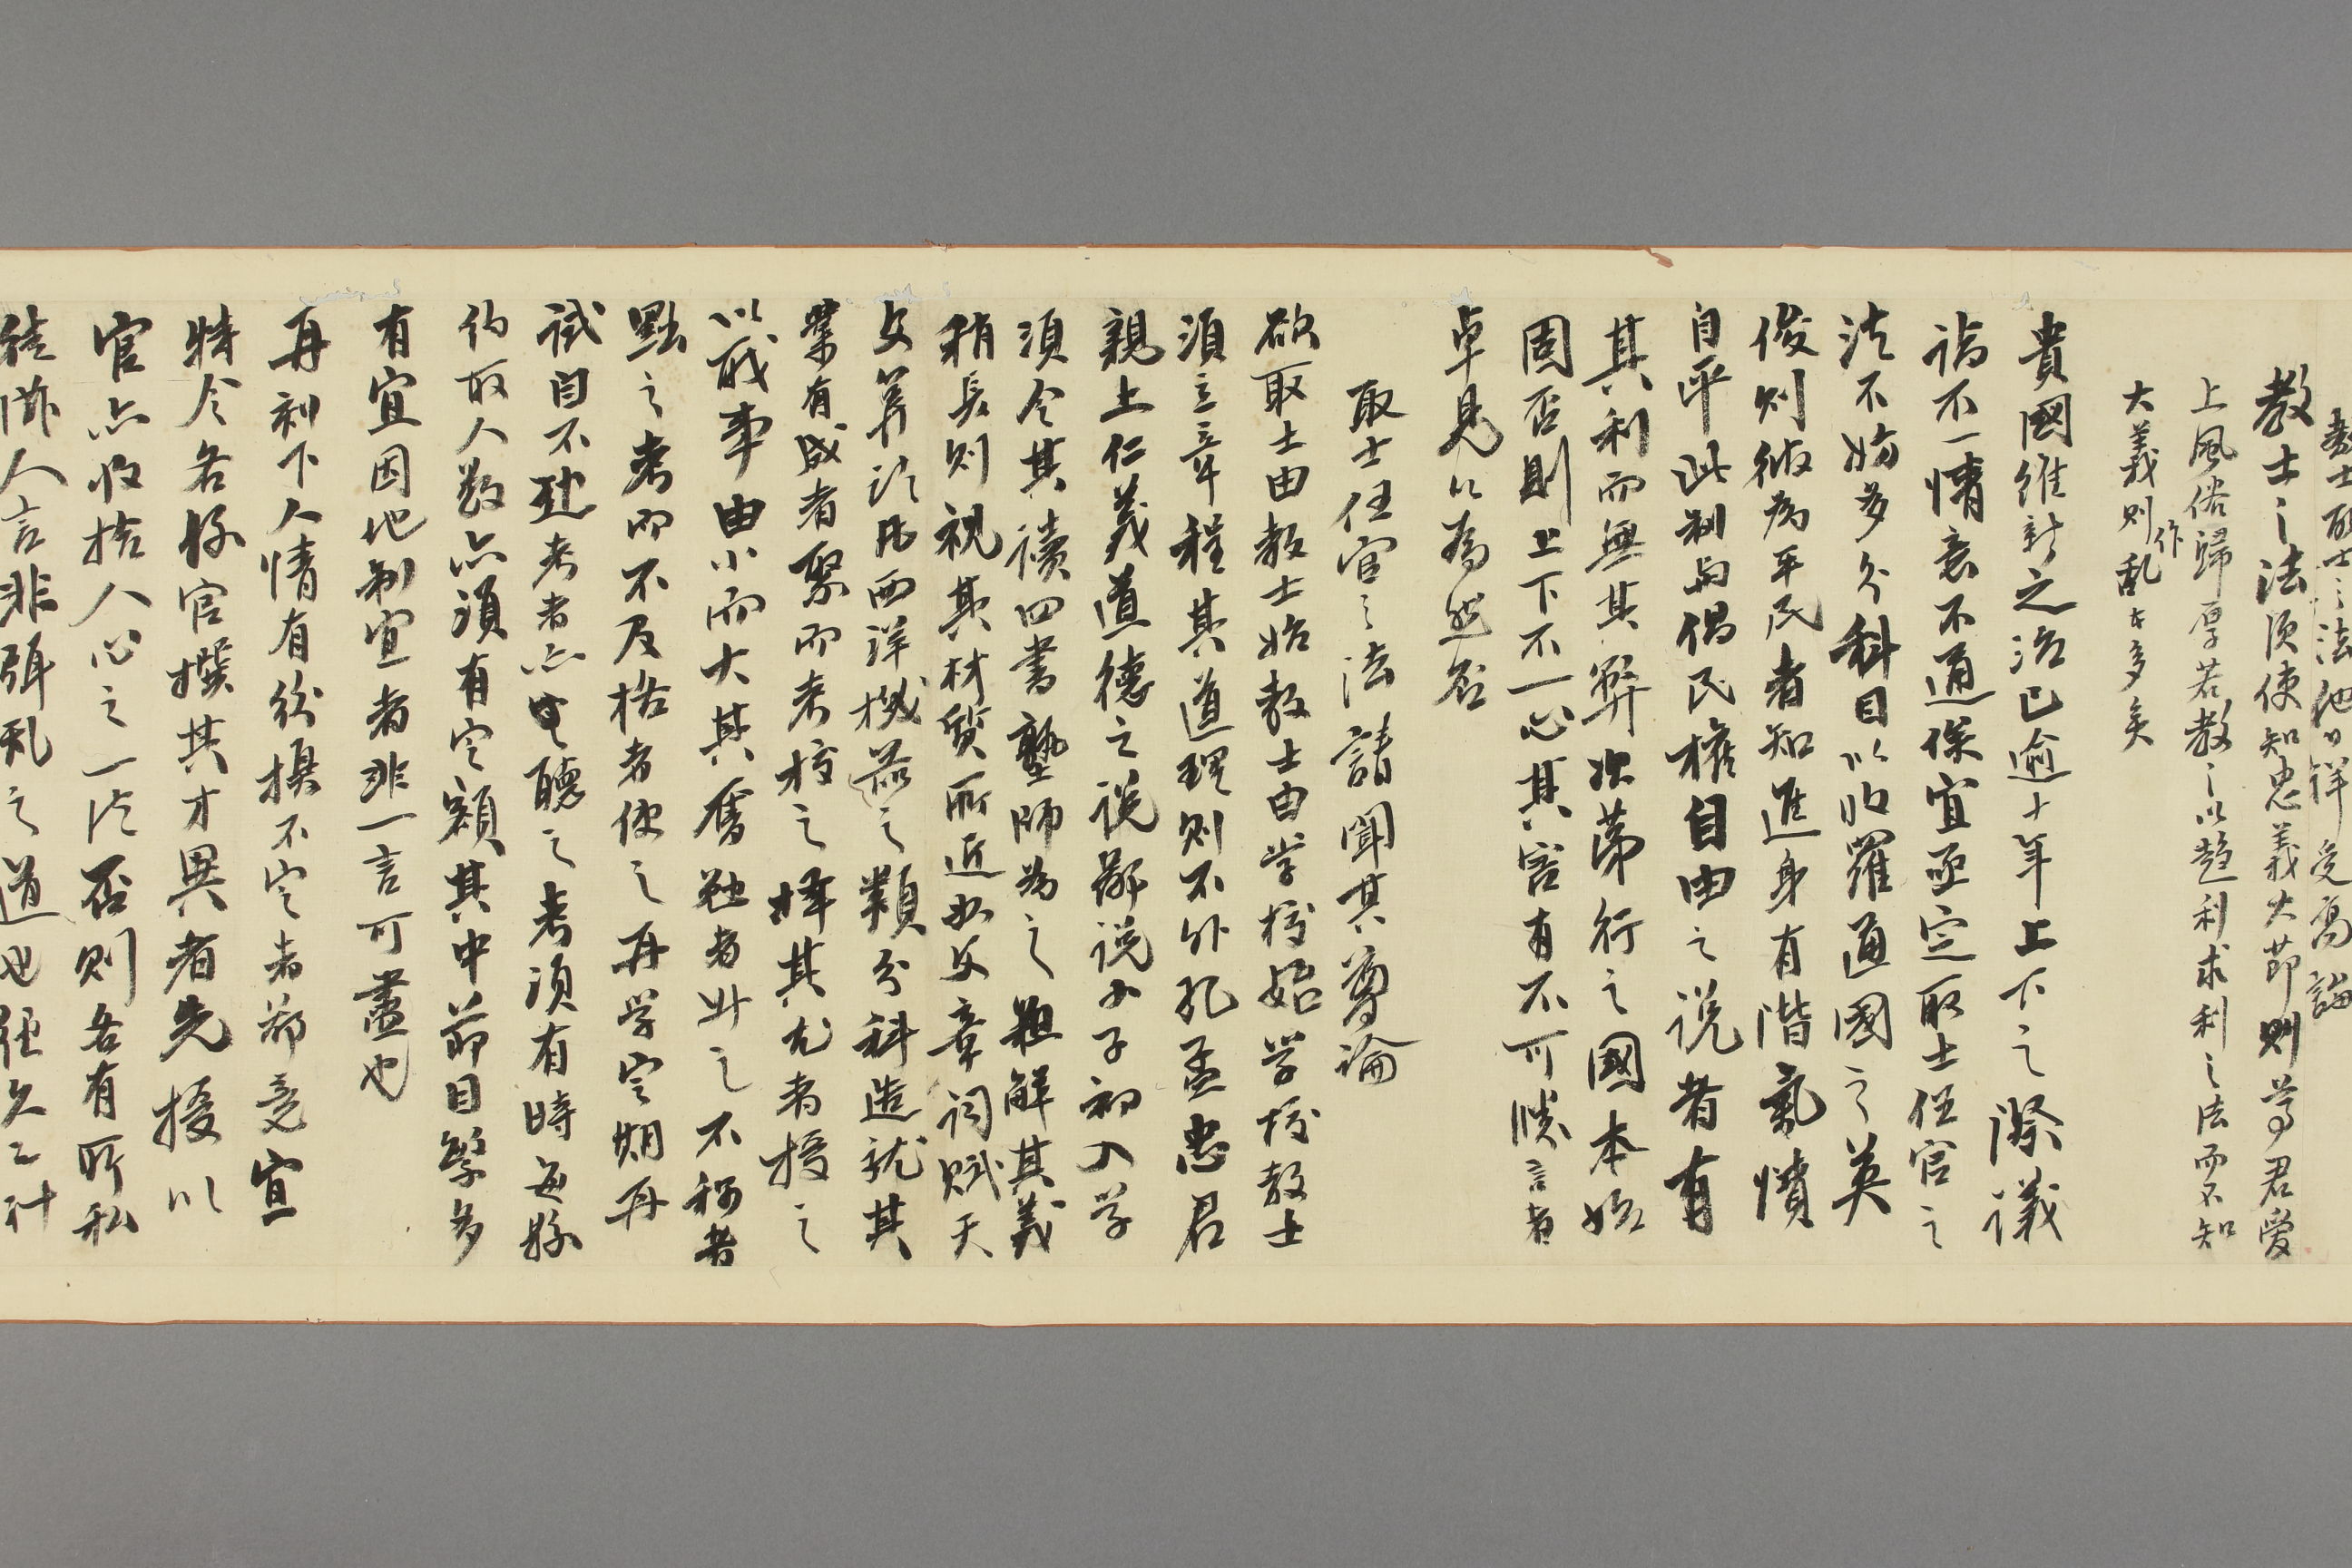 教士取士之法他日詳受高論
教士之法須使知忠義大節則尊君愛
上風俗歸厚若教之以趨利求利之法而不知
大義則作乱者多矣
貴國維新之治已逾十年上下之際議
論不一情意不通僕宜亟定取士任官之
法不妨多分科目以收羅通國之英
俊則彼為平民者知進身有階氣憤
自平此制與倡民權自由之説者有
其利而無其弊次第行之國本始
固否則上下不一心其害有不可勝言者
卓見以為然否
取士任官之法請聞其尊論
欲取士由教士始教士由学校始学校教士
須立章程其道理則不外孔孟忠君
親上仁義道德之説辭説小子初入学
須令其讀四書塾師為之粗解其義
稍長則視其材質所近如文章詞賦天
文算訟凡西洋機器之類分科造就其
業有成者聚而考校之擇其尤者授之
以職事由小而大其奮勉者升之不稱者
黜之考而不及格者使之再学定期再
試自不赴考者亦聽之考須有時每縣
約取人数亦須有定額其中節目繁多
有宜因地制宜者非一言可盡也
再刻下人情有紛擾不定者希意宜
特令各縣官撰其才異者先授以
官亦收拾人心之一法否則各有所私
徒滋人言非弭乱之道也經久之計